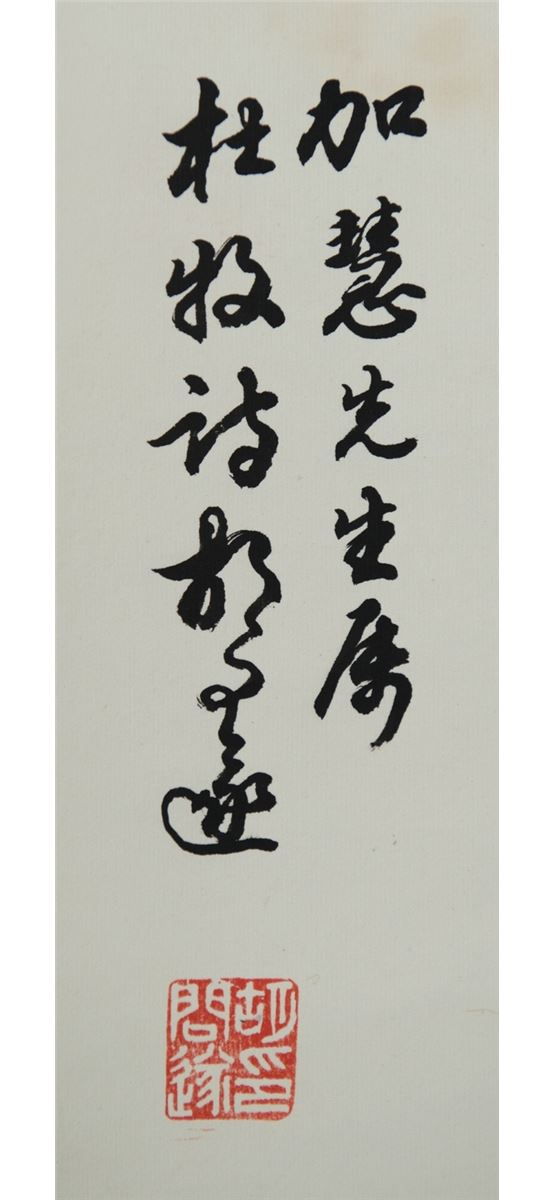 加慧先生属
杜牧诗胡问遂
胡印
問遂